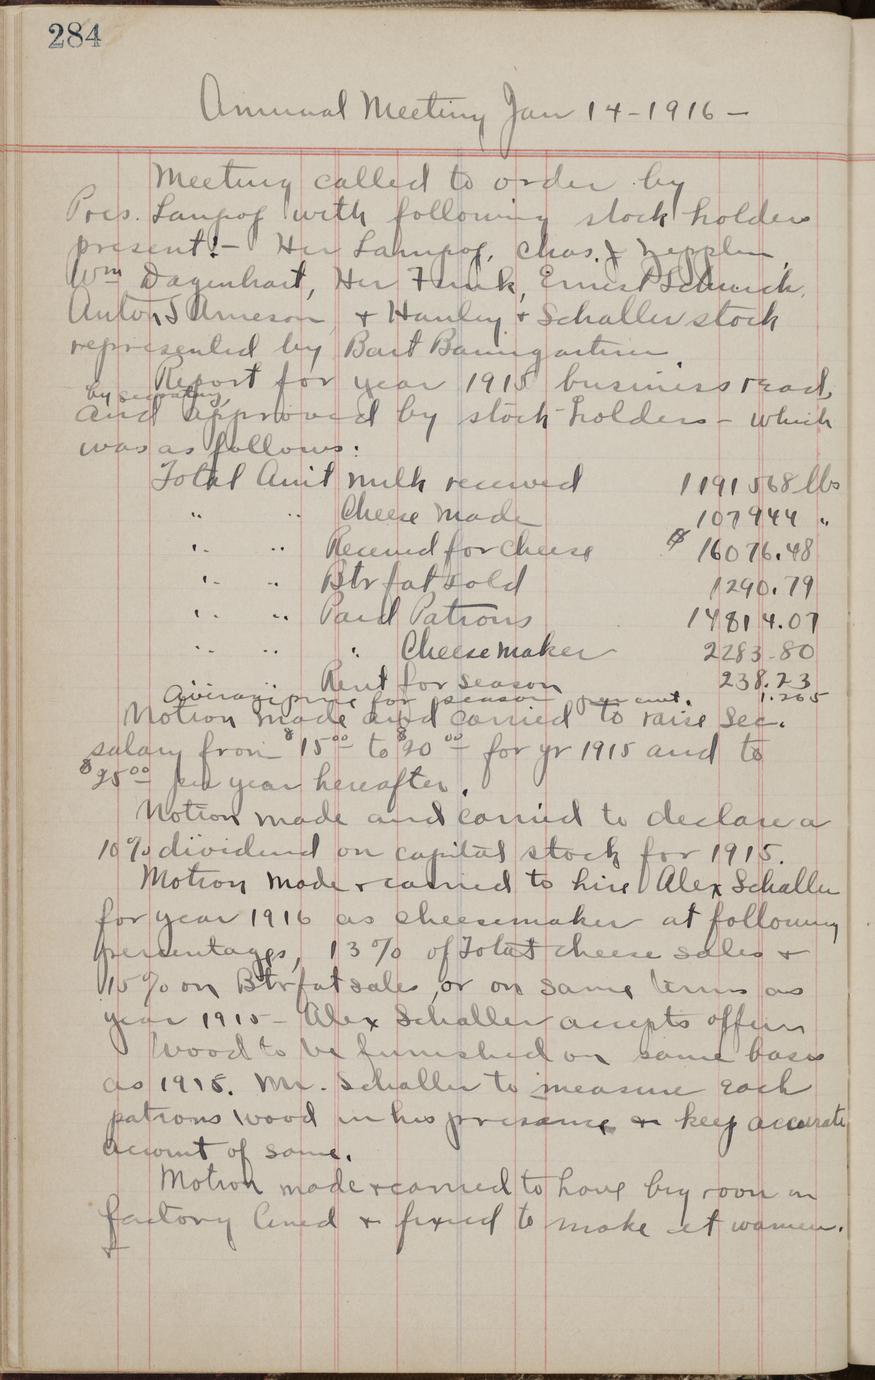 284
Annual Meeting Jan 14-1916-
Meeting called to order by
Pres. Lampog with following stock holders
present:- Her Lampog, Chas. J Zepplin,
Wm Dagenhart, Her Funk, Ernest Schenck,
Anton S Arneson, + Hanley + Schaller stock
represented by Bart Baumgartner
Report for year 1915 business read,
by secretary,
and approved by stock-holders - which
was as follows:
Total Amt milk received 1191568 lbs
" " Cheese Made 107944 "
" " Received for cheese $16076.48
" " Btr fat sold 1290.79
" " Paid Patrons 14814.07
" " " Cheesemaker 2283.80
Rent for season 238.23
Average price for season per cwt. 1.265
Motion made and carried to raise Sec.
salary from $15.00 to $20.00 for yr 1915 and to
$25.00 per year hereafter.
Motion made and carried to declare a
10% dividend on capital stock for 1915.
Motion made + carried to hire Alex Schaller
for year 1916 as cheesemaker at following
percentages, 13% of Total cheese sales +
15% on Btr fat sales, or on same terms as
year 1915 - Alex Schaller accepts offer
Wood to be furnished on same basis
as 1915. Mr. Schaller to measure each
patrons wood in his presence + keep accurate
account of same.
Motion made + carried to have big room in
factory lined + fixed to make it warmer.
+